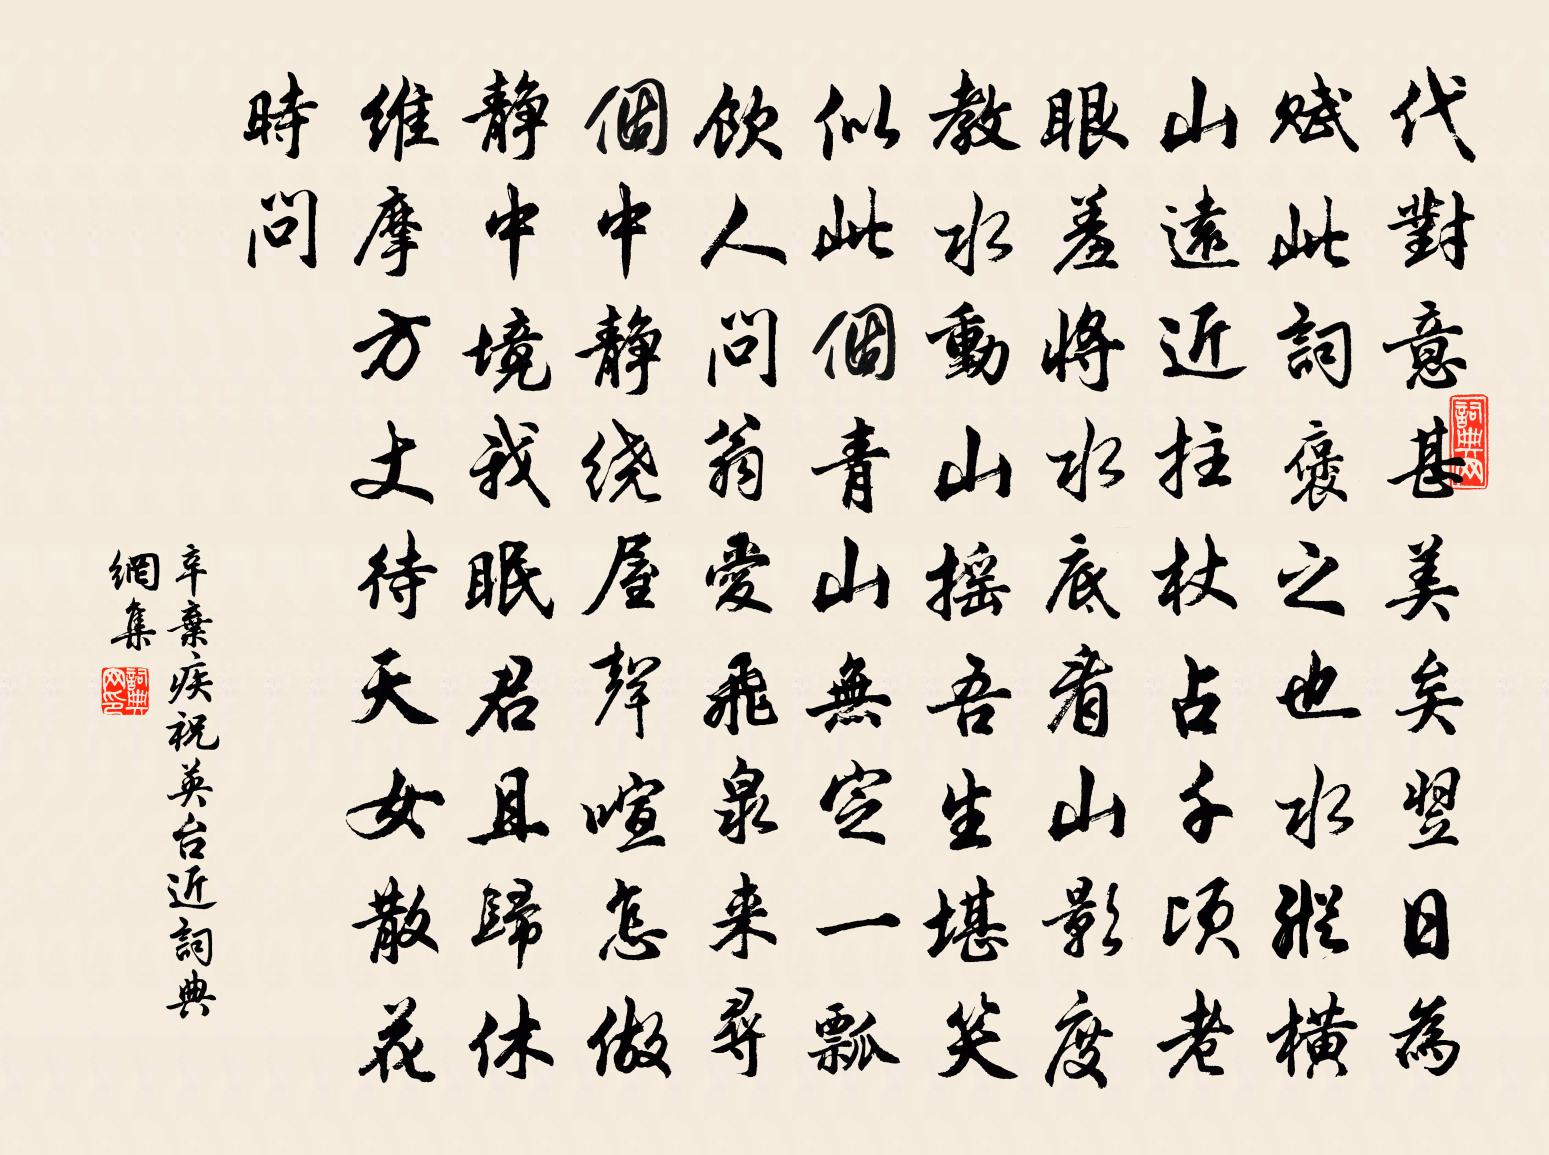 代對意甚美矣翌日為
賦此詞褒之也水縱橫
山遠近拄杖占千頃老
眼羞將水底看山影度
教水動山摇吾生堪笑
似此個青山無定一瓢
飲人問翁愛飛泉来尋
個中静绕屋聲喧怎做
静中境我眠君且歸休
維摩方丈待天女散花
時問
辛棄疾祝英台近詞典
網集
詞典网
詞典网印